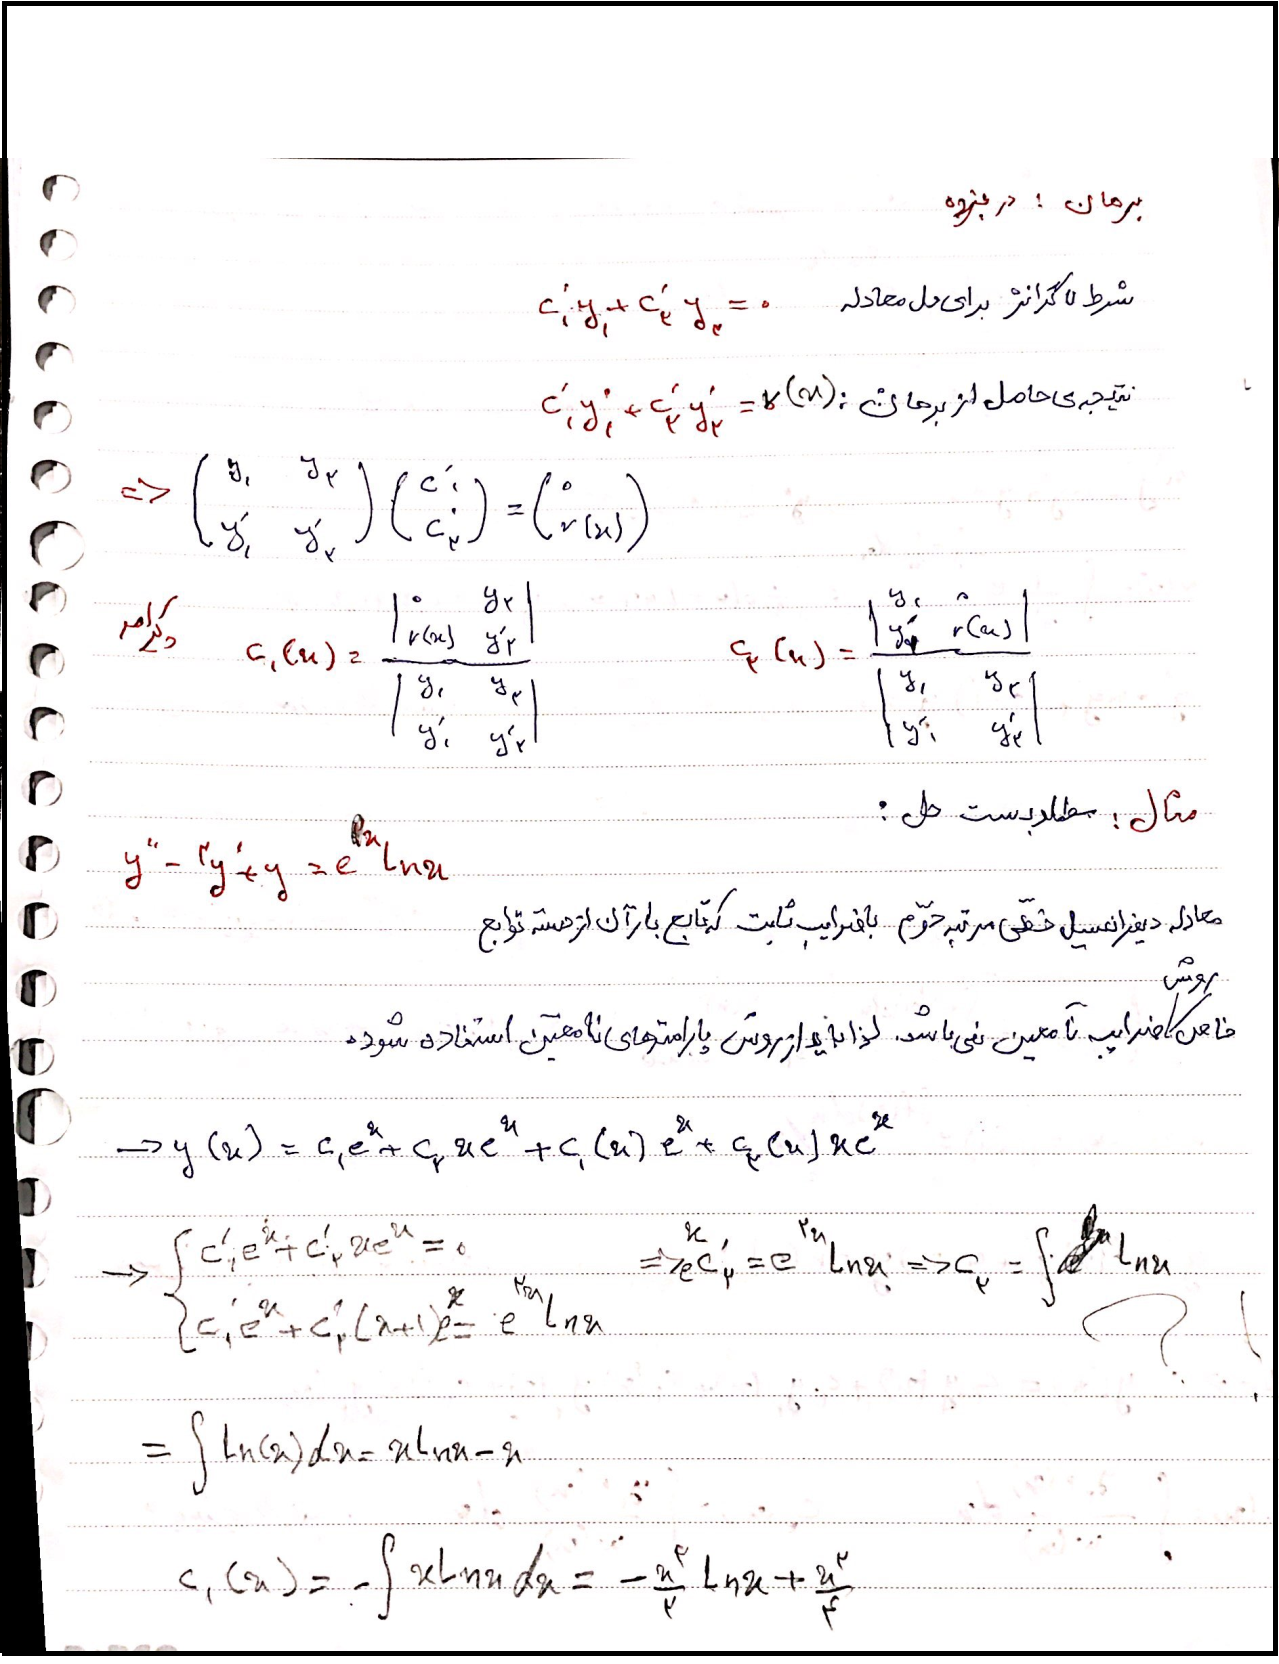 برهان : در جزوه
شرط لاگرانژ برای حل معادله c₁′y₁ + c₂′y₂ = 0
نتیجه‌ی حاصل از برهان : c₁′y₁′ + c₂′y₂′ = r(x)
=> (y₁ y₂ / y₁′ y₂′)(c₁′ / c₂′) = (0 / r(x))
c₁(x) = |0 y₂ / r(x) y₂′| / |y₁ y₂ / y₁′ y₂′| c₂(x) = |y₁ 0 / y₁′ r(x)| / |y₁ y₂ / y₁′ y₂′|
مثال : مطلوبست حل :
y″ - ۲y′ + y = eˣ Lnx
معادله دیفرانسیل خطی مرتبه دوم با ضرایب ثابت که تابع بار آن از دسته توابع
روش
خاص ضرایب نامعین نمی باشد. لذا باید از روش پارامترهای نامعین استفاده شود.
→ y(x) = c₁eˣ + c₂xeˣ + c₁(x)eˣ + c₂(x)xeˣ
→ { c₁′eˣ + c₂′xeˣ = 0
c₁′eˣ + c₂′(x+1)eˣ = e²ˣ Lnx => eˣc₂′ = e²ˣ Lnx => c₂ = ∫ Lnx ?!
= ∫ Ln(x)dx = xLnx - x
c₁(x) = -∫ xLnx dx = -x²/۲ Lnx + x²/۴